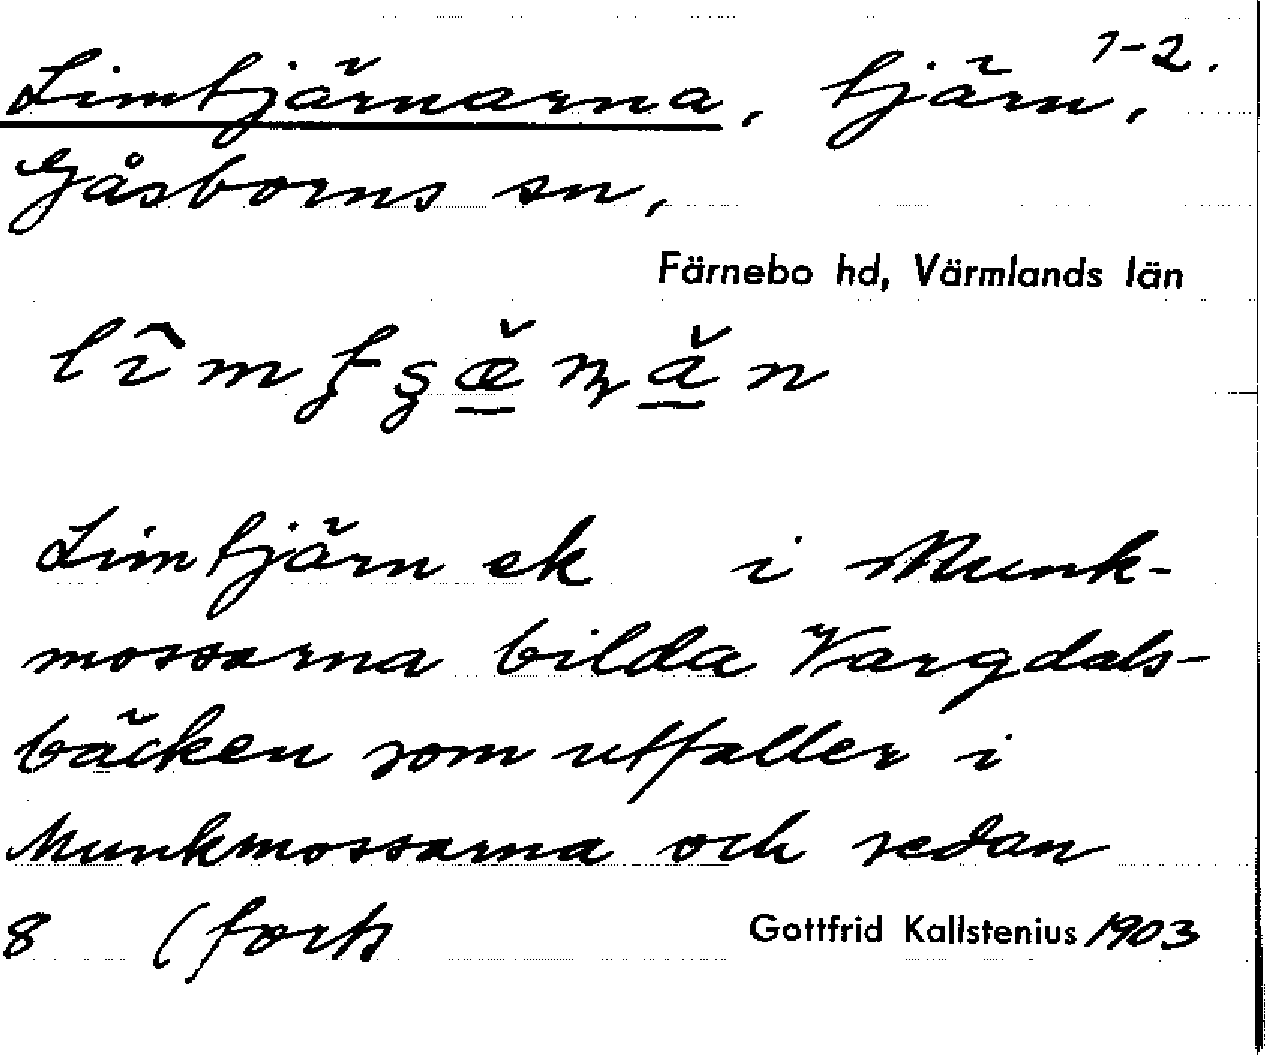 1-2.
Limtjärnarna, tjärn,
Gåsborns sn,
Färnebo hd, Värmlands län
Limtjärn ek i Munk-
mossarna bilda Vargdals-
bäcken som utfaller i
Munkmossarna och sedan
8 (forts Gottfrid Kallstenius 1903